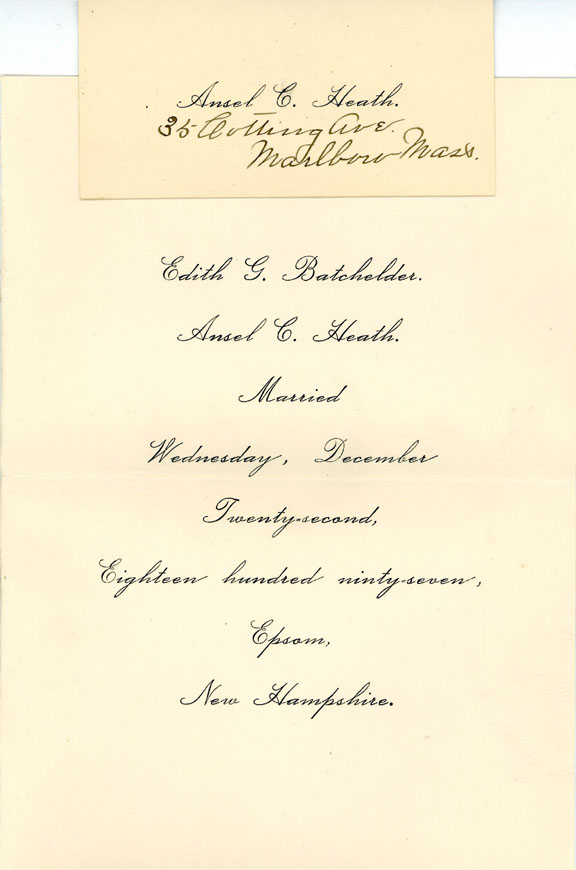 Ansel C. Heath.
35 Cotting Ave.
Marlboro Mass.
Edith G. Batchelder.
Ansel C. Heath.
Married
Wednesday, December
Twenty-second,
Eighteen hundred ninety-seven,
Epsom,
New Hampshire.